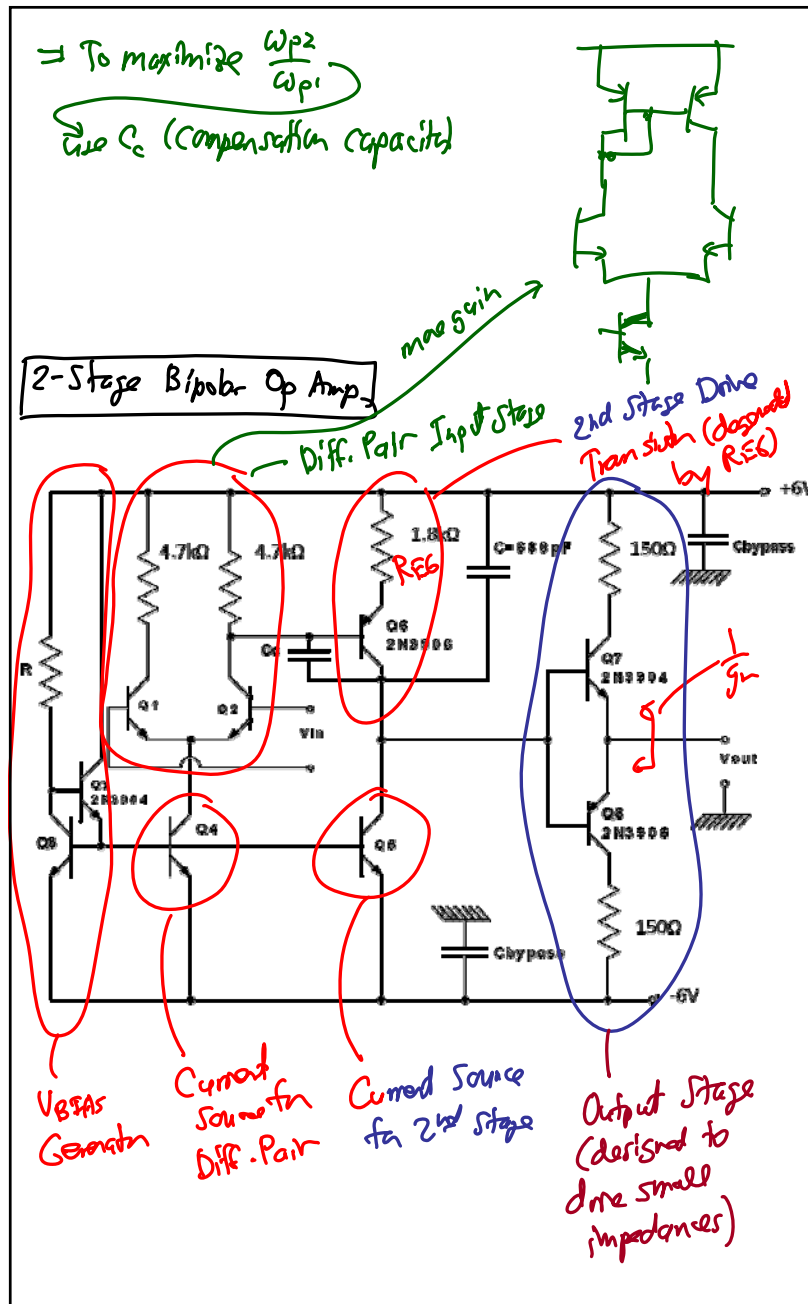 ⇒ To maximize ωp2/ωp1
use Cc (compensation capacitor)
more gain
2-Stage Bipolar Op Amp
Diff. Pair Input Stage
2nd Stage Drive
Transistor (degenerated
by RE6)
+6V
4.7kΩ
4.7kΩ
1.8kΩ
RE6
C=680pF
150Ω
Cbypass
R
Q6
2N3906
Cc
Q7
2N3904
1/gm
Q1
Q2
Vin
Vout
2N3904
Q8
2N3906
Q3
Q4
Q5
150Ω
Cbypass
-6V
VBIAS
Generator
Current
Source for
Diff. Pair
Current Source
for 2nd Stage
Output Stage
(designed to
drive small
impedances)